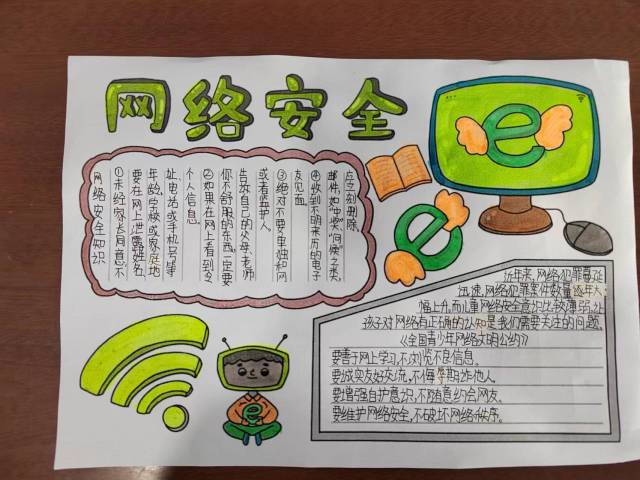 网络安全
网络安全知识
①未经家长同意不
要在网上泄露姓名、
年龄、学校或家庭地
址电话或手机号等
个人信息。
②如果在网上看到令
你不舒服的东西一定要
告诉自己的父母、老师
或者监护人。
③绝对不要单独和网
友见面。
④收到不明来历的电子
邮件,如“中奖”、“问候”之类,
应立刻删除
e
e
近年来,网络犯罪蔓延
迅速,网络犯罪案件数量逐年大
幅上升。而儿童网络安全意识比较薄弱,让
孩子对网络有正确的认知是我们需要关注的问题。
《全国青少年网络文明公约》
要善于网上学习,不浏览不良信息。
要诚实友好交流,不侮辱欺诈他人。
要增强自护意识,不随意约会网友。
要维护网络安全,不破坏网络秩序。
e